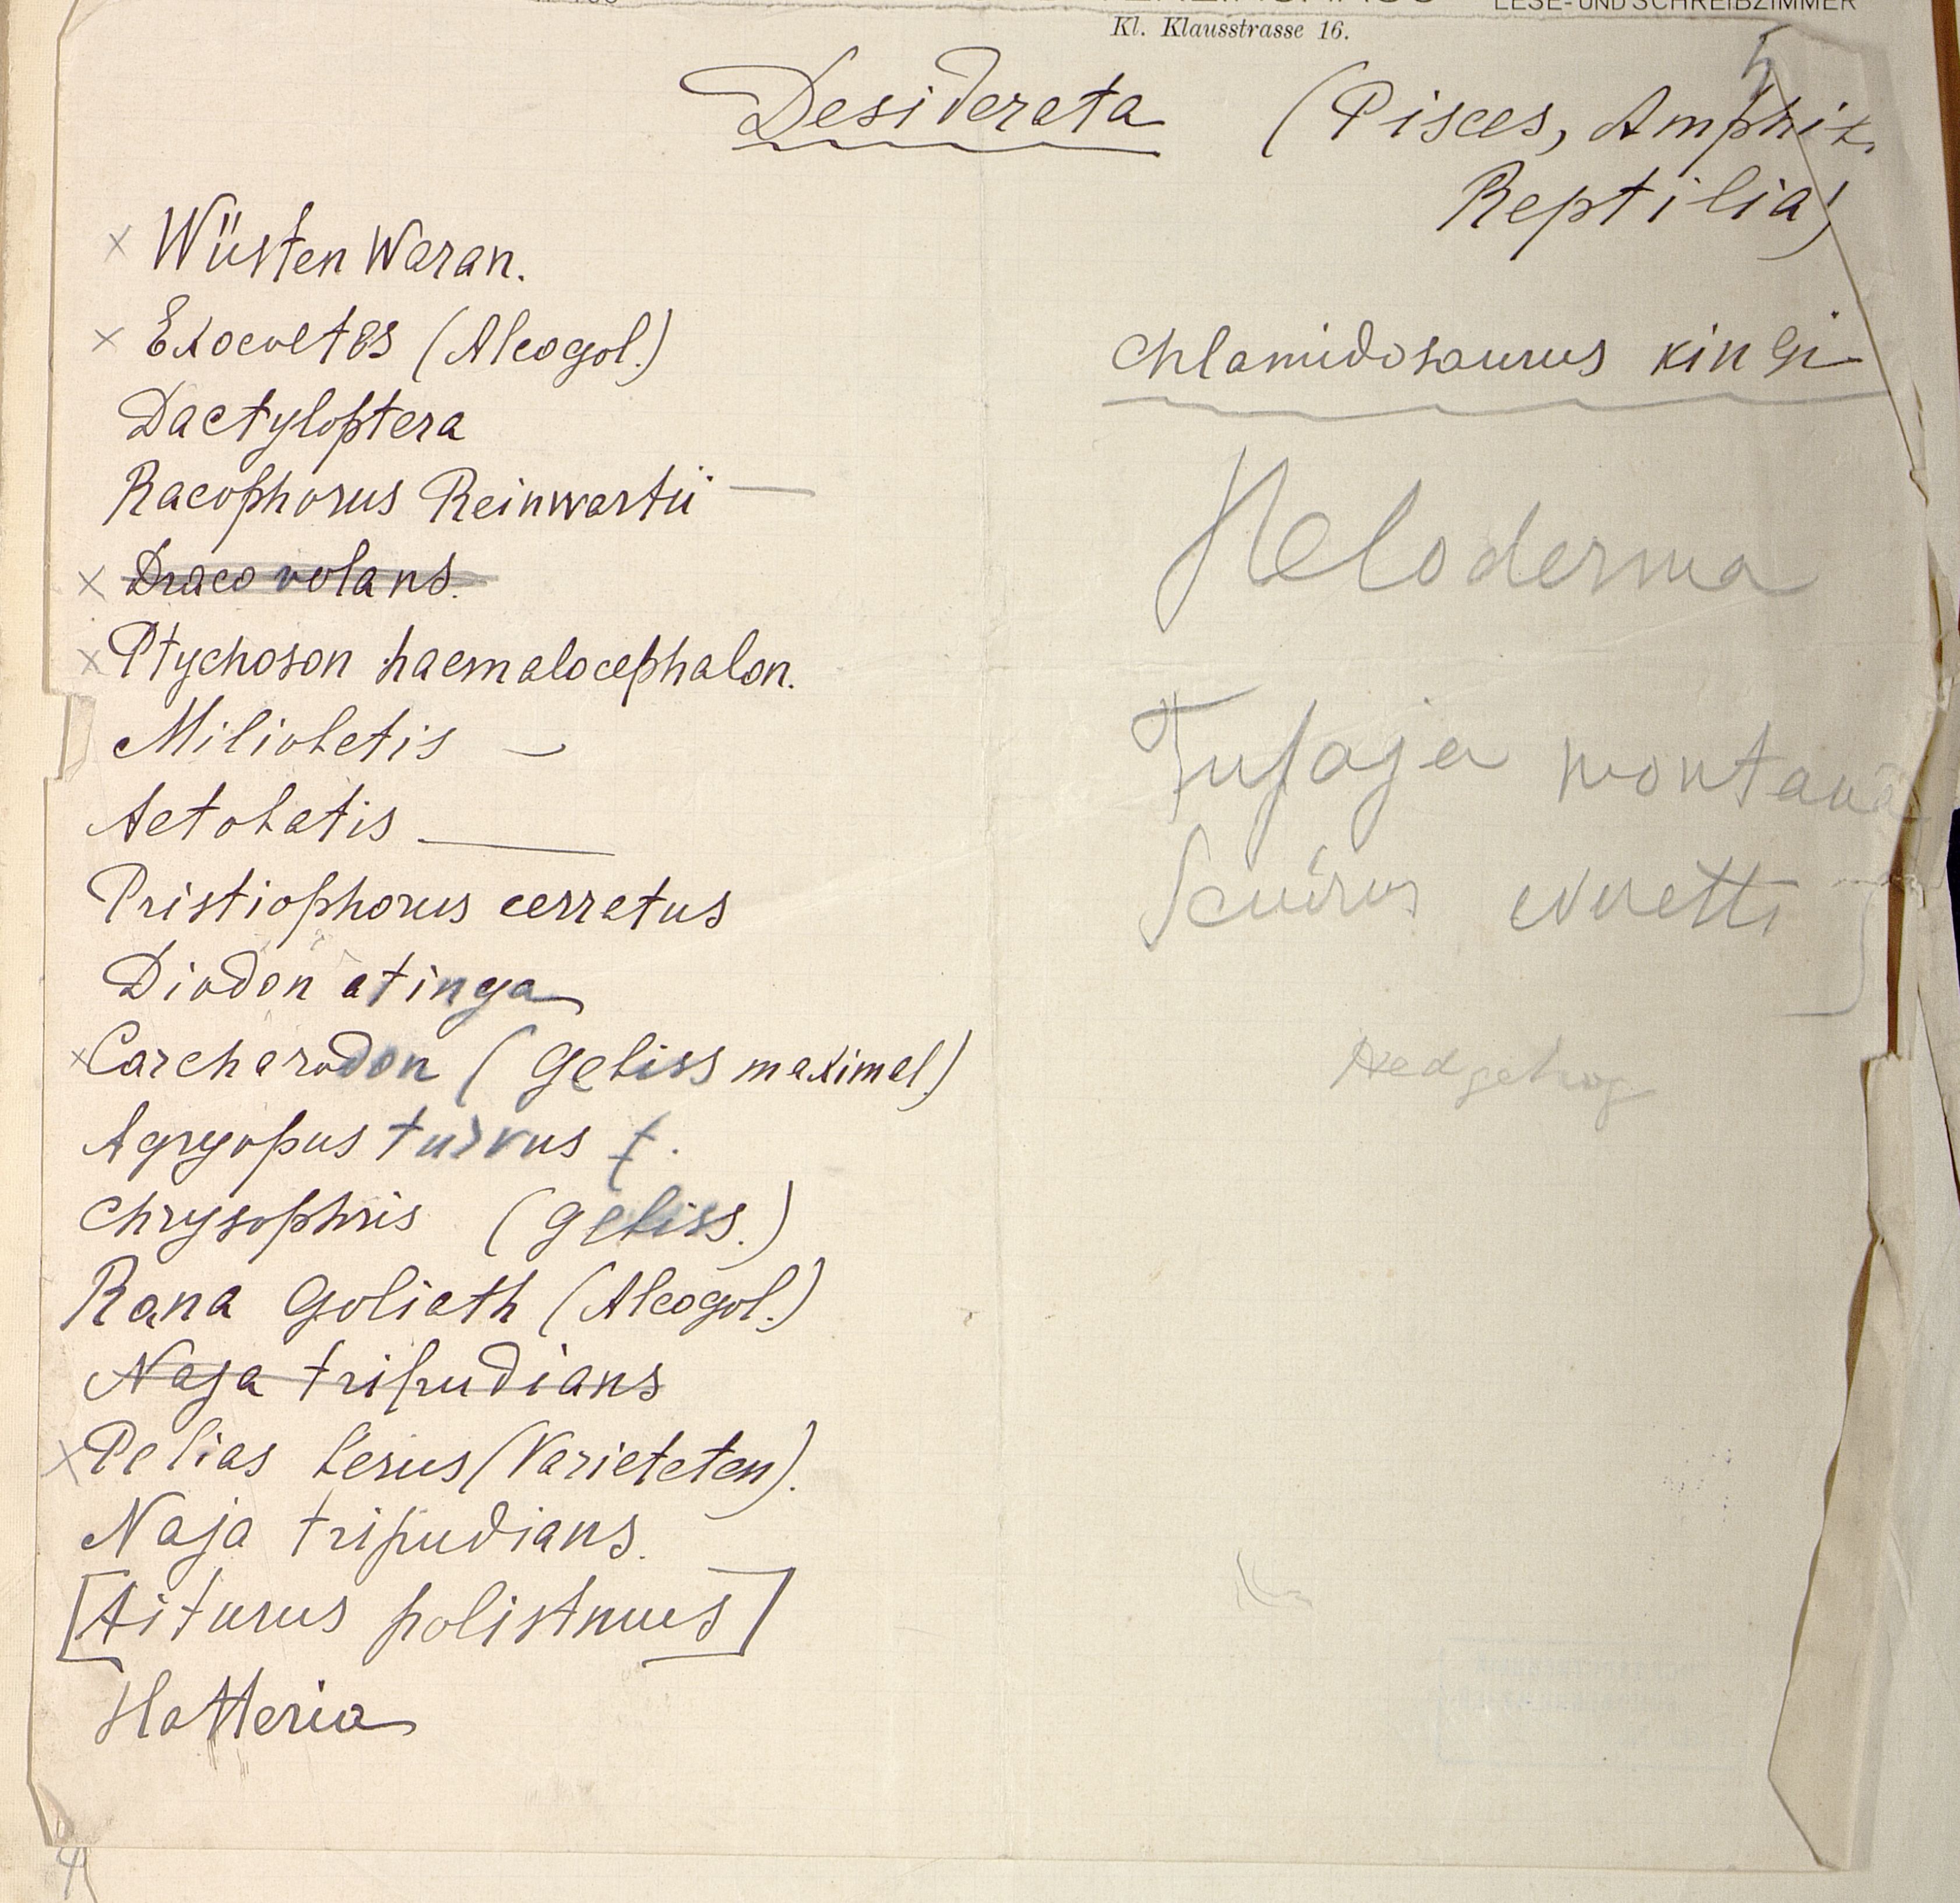 LESE- UND SCHREIBZIMMER
Kl. Klausstrasse 16.
Desiderata (Pisces, Amphib.
Reptilia)
× Wüsten Waran.
× Exocoetes (Alcogol.)
Dactyloptera
Racophorus Reinwartii —
× Draco volans.
× Ptychoson haemalocephalon.
Miliobatis —
Aetobatis —
Pristiophorus cerratus
Diodon atinga
× Carcharodon (Gebiss maximal.)
Agryopus turvus
Chrysophris (gebiss.)
Rana Goliath (Alcogol.)
Naja tripudians
× Pelias berus (Varietaten).
Naja tripudians.
[Ailurus polistnues]
Hatteria
Chlamidosaurus kingi
Heloderma
Tupaja montana
Sciurus
Hedgehog